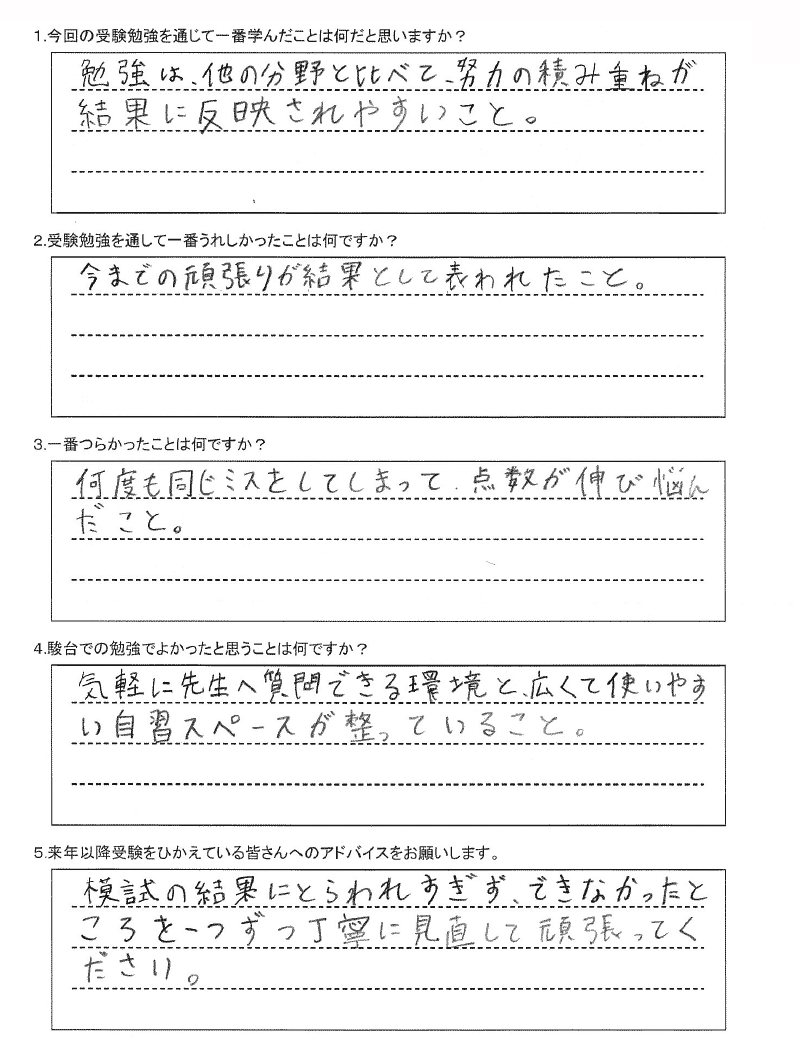 1.今回の受験勉強を通じて一番学んだことは何だと思いますか？
勉強は、他の分野と比べて、努力の積み重ねが
結果に反映されやすいこと。
2.受験勉強を通して一番うれしかったことは何ですか？
今までの頑張りが結果として表われたこと。
3.一番つらかったことは何ですか？
何度も同じミスをしてしまって、点数が伸び悩ん
だこと。
4.駿台での勉強でよかったと思うことは何ですか？
気軽に先生へ質問できる環境と、広くて使いやす
い自習スペースが整っていること。
5.来年以降受験をひかえている皆さんへのアドバイスをお願いします。
模試の結果にとらわれすぎず、できなかったと
ころを一つずつ丁寧に見直して頑張ってく
ださい。